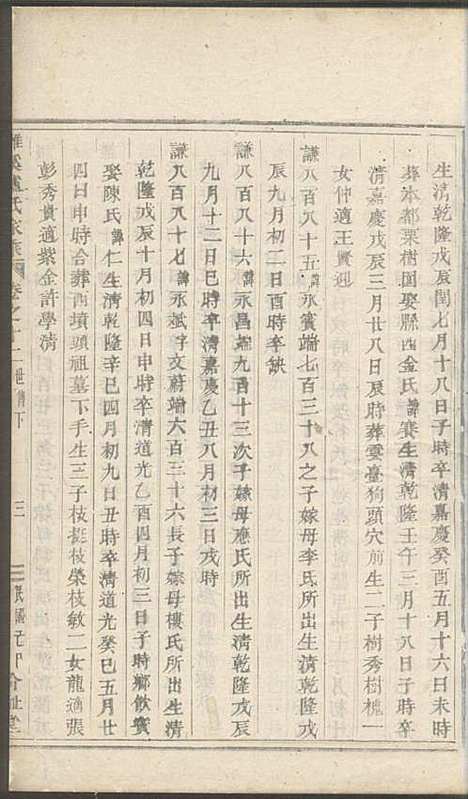 生清乾隆戊辰閏七月十八日子時卒清嘉慶癸酉五月十六日未時
葬本都栗樹園娶縣西金氏諱賽生清乾隆壬午三月十八日子時卒
清嘉慶戊辰三月廿八日辰時葬雲臺狗頭穴前生二子樹秀樹槐一
女仲適王賓迎
謙八百八十五諱永賓端七百三十八之子嫁母李氏所出生清乾隆戊
辰九月初二日酉時卒缺
謙八百八十六諱永昌端九百十三次子嫁母應氏所出生清乾隆戊辰
九月十二日巳時卒清嘉慶乙丑八月初三日戌時
謙八百八十七諱永斌字文蔚端六百三十六長子嫁母樓氏所出生清
乾隆戊辰十月初四日申時卒清道光乙酉四月初三日子時鄉飲賓
娶陳氏諱仁生清乾隆辛巳四月初九日丑時卒清道光癸巳五月廿
四日申時合葬西墳頭祖墓下手生三子枝挺枝榮枝敏二女龍適張
彭秀貴適紫金許學清
溪盧氏家乘 卷之十二世傳下 三 民國元年合祉堂